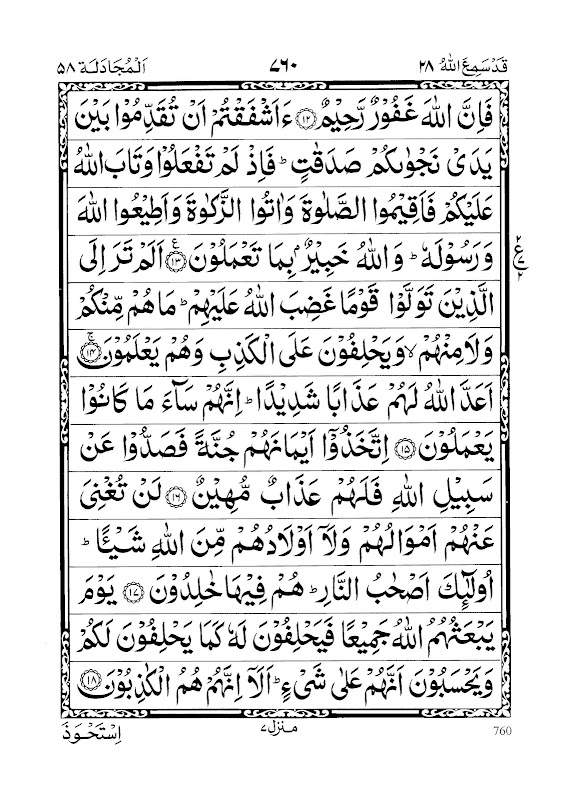 قَدْ سَمِعَ اللّٰهُ ۲۸ ۷۶۰ اَلْمُجَادَلَة ۵۸
فَاِنَّ اللّٰهَ غَفُوْرٌ رَّحِيْمٌ ۝۱۲ ءَاَشْفَقْتُمْ اَنْ تُقَدِّمُوْا بَيْنَ
يَدَىْ نَجْوٰىكُمْ صَدَقٰتٍ ؕ فَاِذْ لَمْ تَفْعَلُوْا وَتَابَ اللّٰهُ
عَلَيْكُمْ فَاَقِيْمُوا الصَّلٰوةَ وَاٰتُوا الزَّكٰوةَ وَاَطِيْعُوا اللّٰهَ
وَرَسُوْلَهٗ ؕ وَاللّٰهُ خَبِيْرٌۢ بِمَا تَعْمَلُوْنَ ۝۱۳ اَلَمْ تَرَ اِلَى
الَّذِيْنَ تَوَلَّوْا قَوْمًا غَضِبَ اللّٰهُ عَلَيْهِمْ ؕ مَا هُمْ مِّنْكُمْ
وَلَا مِنْهُمْ ۙ وَيَحْلِفُوْنَ عَلَى الْكَذِبِ وَهُمْ يَعْلَمُوْنَ ۝۱۴
اَعَدَّ اللّٰهُ لَهُمْ عَذَابًا شَدِيْدًا ؕ اِنَّهُمْ سَآءَ مَا كَانُوْا
يَعْمَلُوْنَ ۝۱۵ اِتَّخَذُوْۤا اَيْمَانَهُمْ جُنَّةً فَصَدُّوْا عَنْ
سَبِيْلِ اللّٰهِ فَلَهُمْ عَذَابٌ مُّهِيْنٌ ۝۱۶ لَنْ تُغْنِىَ
عَنْهُمْ اَمْوَالُهُمْ وَلَاۤ اَوْلَادُهُمْ مِّنَ اللّٰهِ شَيْـًٔا ؕ
اُولٰٓئِكَ اَصْحٰبُ النَّارِ ؕ هُمْ فِيْهَا خٰلِدُوْنَ ۝۱۷ يَوْمَ
يَبْعَثُهُمُ اللّٰهُ جَمِيْعًا فَيَحْلِفُوْنَ لَهٗ كَمَا يَحْلِفُوْنَ لَكُمْ
وَيَحْسَبُوْنَ اَنَّهُمْ عَلٰى شَىْءٍ ؕ اَلَاۤ اِنَّهُمْ هُمُ الْكٰذِبُوْنَ ۝۱۸
760 منزل ۷ اِسْتَحْوَذَ